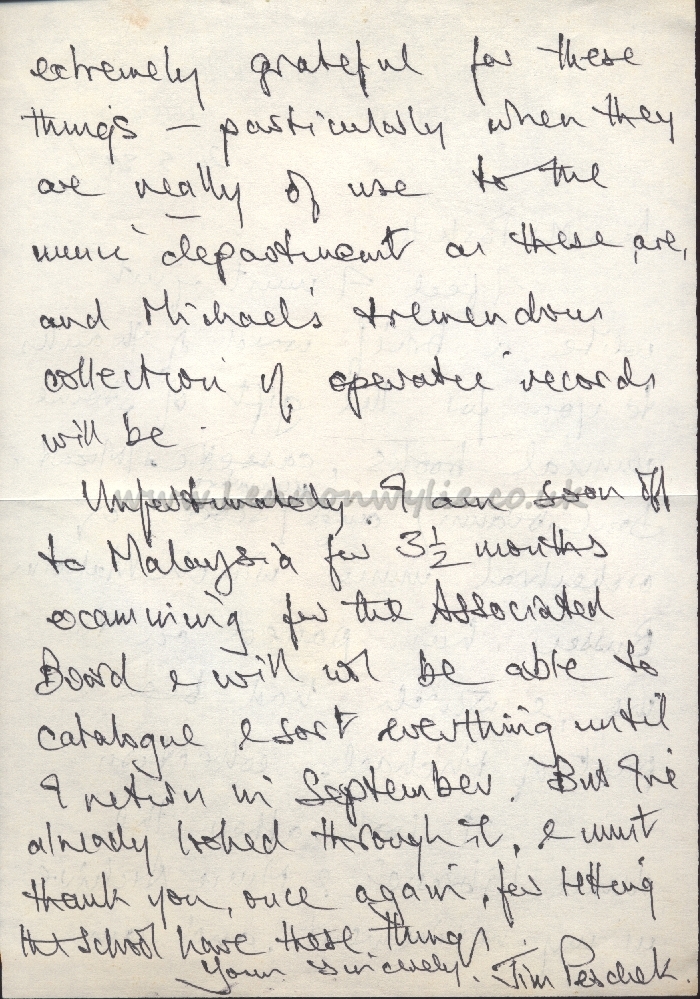 extremely grateful for these
things – particularly when they
are really of use to the
music department as these are,
and Michael's tremendous
collection of operatic records
will be.
Unfortunately I am soon off
www.lennonwylie.co.uk
to Malaysia for 3½ months
examining for the Associated
Board & will not be able to
catalogue & sort everthing until
I return in September. But I've
already looked through it, & must
thank you, once again, for letting
the school have these things.
Yours sincerely. Jim Peschek.